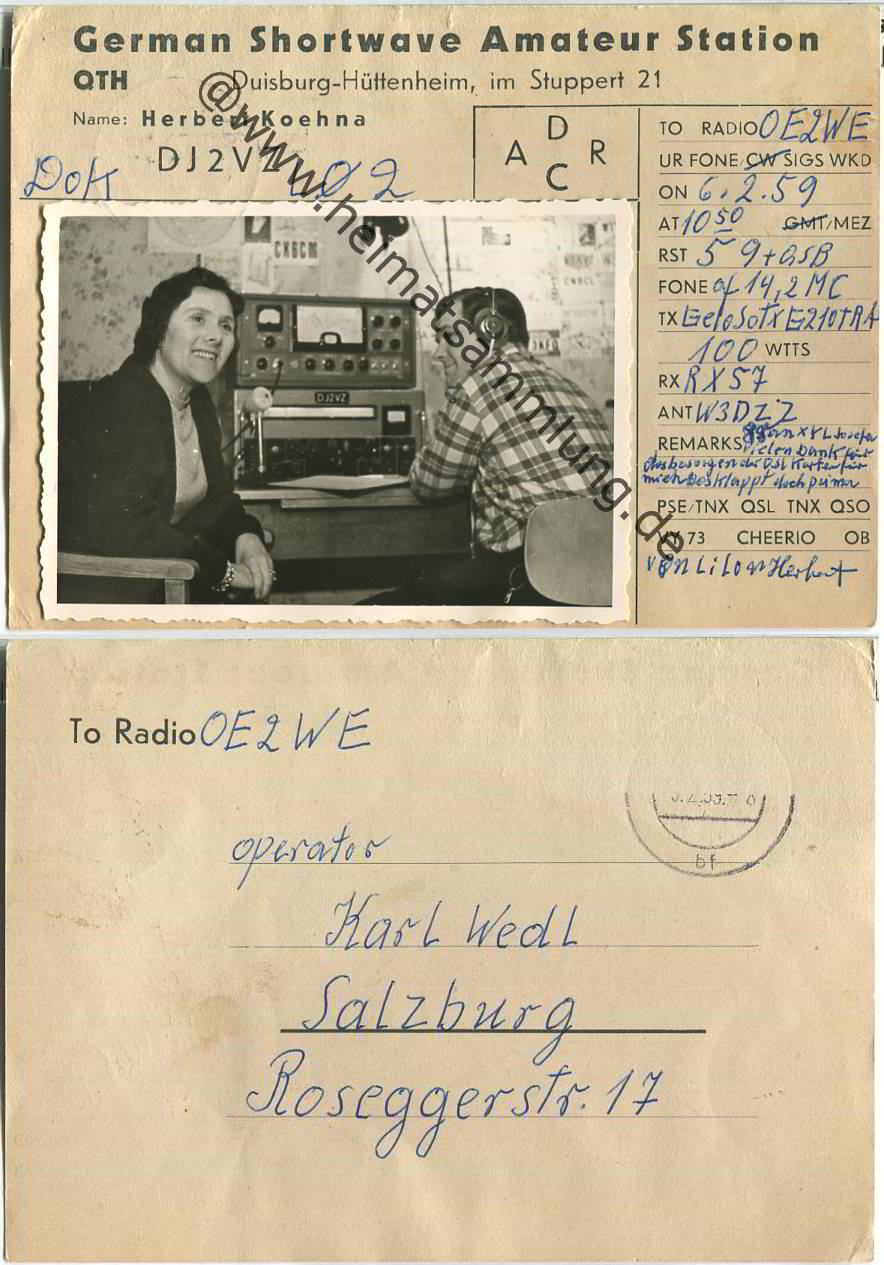 German Shortwave Amateur Station
QTH Duisburg-Hüttenheim, im Stuppert 21
Name: Herbert Koehna
DJ2VZ
Dok L02
D
A R
C
TO RADIO OE2WE
UR FONE/CW SIGS WKD
ON 6.2.59
AT 10 50 GMT/MEZ
RST 5 9+QSB
FONE af 14,2 MC
TX GeloSoTX G210+RA
100 WTTS
RX RX57
ANT W3DZZ
REMARKS an XYL Josefa
vielen Dank für
das besorgen der QSL Karten für
mich es klappt doch prima
PSE/TNX QSL TNX QSO
VY 73 CHEERIO OB
von Lilo u Herbert
СКВСМ
DJ2VZ
@www.heimatsammlung.de
To Radio OE2WE
operator
Karl Wedl
Salzburg
Roseggerstr. 17
bf